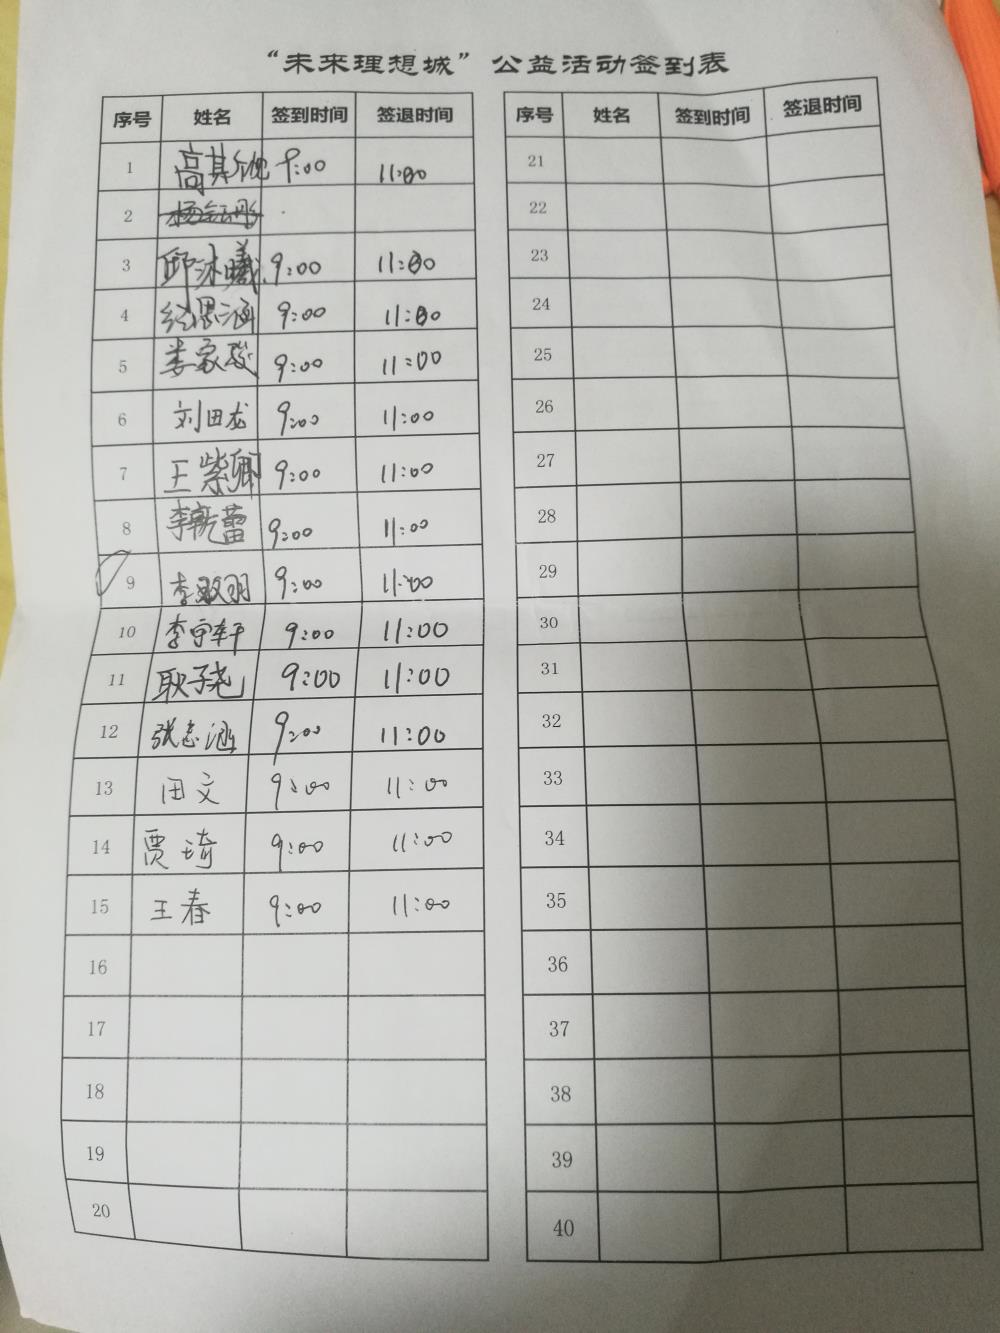 “未来理想城”公益活动签到表
序号 姓名 签到时间 签退时间
1 高其 9:00 11:00
2
3 邱沐曦 9:00 11:00
4 思涵 9:00 11:00
5 娄家骏 9:00 11:00
6 刘田龙 9:00 11:00
7 王紫卿 9:00 11:00
8 李 蕾 9:00 11:00
9 李 羽 9:00 11:00
10 李宇轩 9:00 11:00
11 耿子尧 9:00 11:00
12 张志涵 9:00 11:00
13 田文 9:00 11:00
14 贾琦 9:00 11:00
15 王春 9:00 11:00
16
17
18
19
20
序号 姓名 签到时间 签退时间
21
22
23
24
25
26
27
28
29
30
31
32
33
34
35
36
37
38
39
40